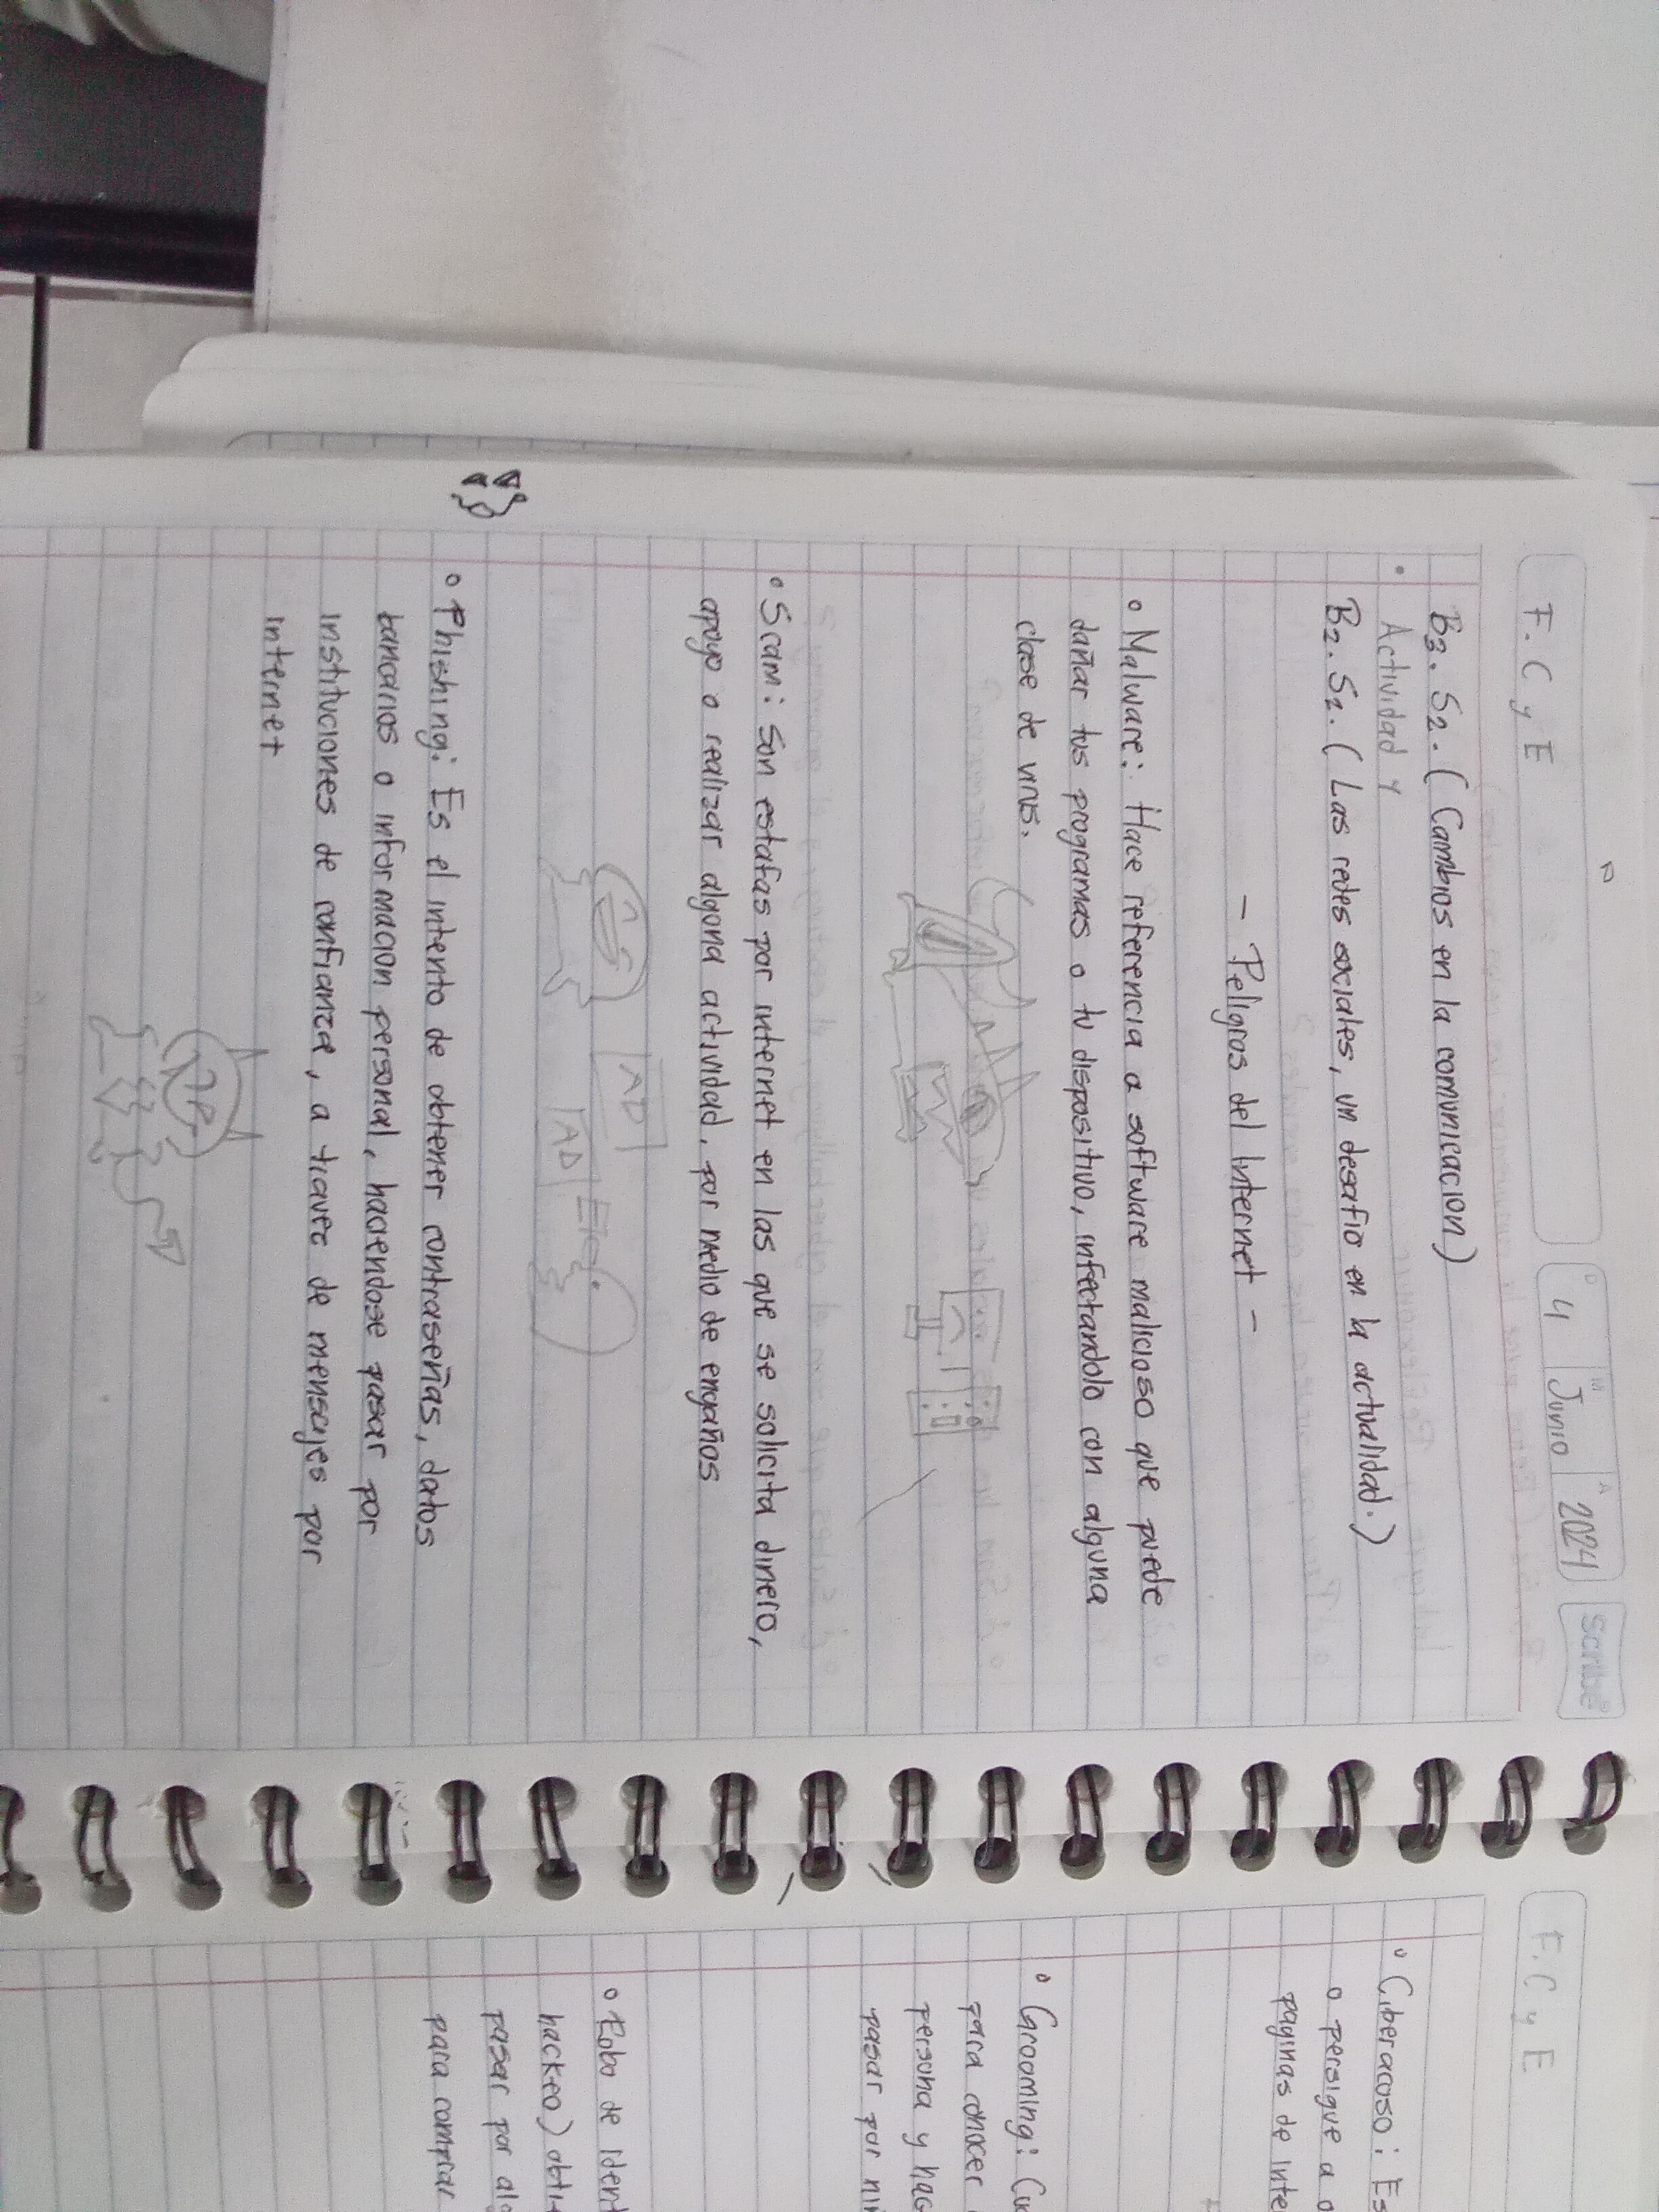 F. C y E
D 4 M Junio A 2024 Scribe
B3. S2. (Cambios en la comunicacion)
Actividad y
B2. S2. (Las redes sociales, un desafio en la actualidad.)
- Peligros del Internet -
° Malware: Hace referencia a software malicioso que puede
dañar tus programas o tu dispositivo, infectandolo con alguna
clase de virus.
° Scam: Son estafas por internet en las que se solicita dinero,
apoyo o realizar alguna actividad, por medio de engaños
AD
AD
° Phishing: Es el intento de obtener contraseñas, datos
bancarios o informacion personal, haciendose pasar por
instituciones de confianza, a travez de mensajes por
internet
F. C y E
° Ciberacoso: Es
o persigue a o
paginas de inte
° Grooming: Cu
para conocer
persona y hac
pasar por niñ
° Robo de ident
hackeo) obti
pasar por alg
para comprar